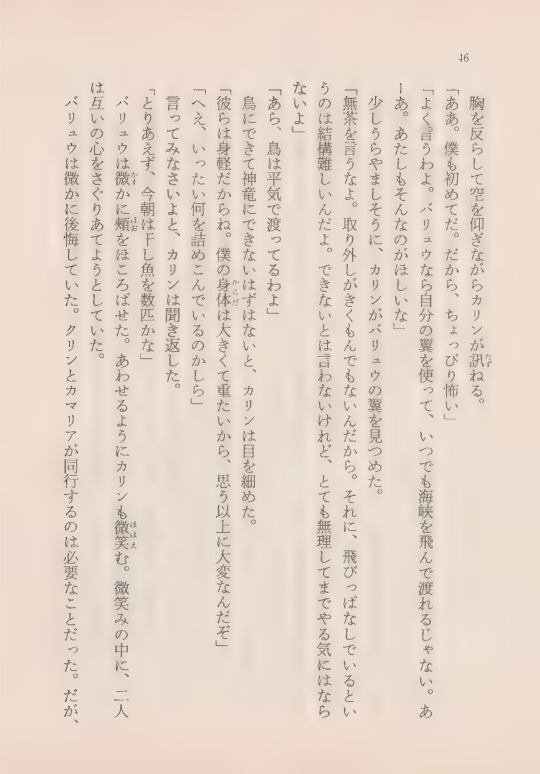 46
胸を反らして空を仰ぎながらカリンが訊ねる。
「ああ。僕も初めてだ。だから、ちょっぴり怖い」
「よく言うわよ。バリュウなら自分の翼を使って、いつでも海峡を飛んで渡れるじゃない。あ
ーあ。あたしもそんなのがほしいな」
少しうらやましそうに、カリンがバリュウの翼を見つめた。
「無茶を言うなよ。取り外しがきくもんでもないんだから。それに、飛びっぱなしでいるとい
うのは結構難しいんだよ。できないとは言わないけれど、とても無理してまでやる気にはなら
ないよ」
「あら、鳥は平気で渡ってるわよ」
鳥にできて神竜にできないはずはないと、カリンは目を細めた。
「彼らは身軽だからね。僕の身体は大きくて重たいから、思う以上に大変なんだぞ」
「へえ、いったい何を詰めこんでいるのかしら」
言ってみなさいよと、カリンは聞き返した。
「とりあえず、今朝は干し魚を数匹かな」
バリュウは微かに頬をほころばせた。あわせるようにカリンも微笑む。微笑みの中に、二人
は互いの心をさぐりあてようとしていた。
バリュウは微かに後悔していた。クリンとカマリアが同行するのは必要なことだった。だが、